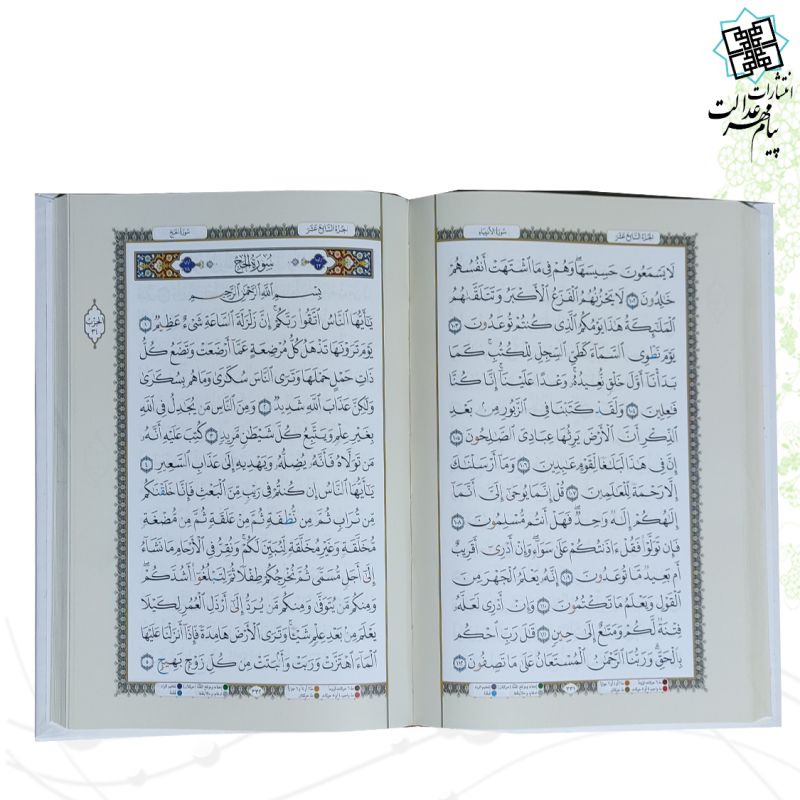 انتشارات
پیام مهر عدالت
الجزء السابع عشر
سورة الأنبياء
لَا يَسْمَعُونَ حَسِيسَهَا وَهُمْ فِي مَا اشْتَهَتْ أَنفُسُهُمْ
خَالِدُونَ ١٠٢ لَا يَحْزُنُهُمُ الْفَزَعُ الْأَكْبَرُ وَتَتَلَقَّاهُمُ
الْمَلَائِكَةُ هَٰذَا يَوْمُكُمُ الَّذِي كُنتُمْ تُوعَدُونَ ١٠٣
يَوْمَ نَطْوِي السَّمَاءَ كَطَيِّ السِّجِلِّ لِلْكُتُبِ كَمَا
بَدَأْنَا أَوَّلَ خَلْقٍ نُّعِيدُهُ وَعْدًا عَلَيْنَا إِنَّا كُنَّا
فَاعِلِينَ ١٠٤ وَلَقَدْ كَتَبْنَا فِي الزَّبُورِ مِن بَعْدِ
الذِّكْرِ أَنَّ الْأَرْضَ يَرِثُهَا عِبَادِيَ الصَّالِحُونَ ١٠٥
إِنَّ فِي هَٰذَا لَبَلَاغًا لِّقَوْمٍ عَابِدِينَ ١٠٦ وَمَا أَرْسَلْنَاكَ
إِلَّا رَحْمَةً لِّلْعَالَمِينَ ١٠٧ قُلْ إِنَّمَا يُوحَىٰ إِلَيَّ أَنَّمَا
إِلَٰهُكُمْ إِلَٰهٌ وَاحِدٌ فَهَلْ أَنتُم مُّسْلِمُونَ ١٠٨
فَإِن تَوَلَّوْا فَقُلْ آذَنتُكُمْ عَلَىٰ سَوَاءٍ وَإِنْ أَدْرِي أَقَرِيبٌ
أَم بَعِيدٌ مَّا تُوعَدُونَ ١٠٩ إِنَّهُ يَعْلَمُ الْجَهْرَ مِنَ
الْقَوْلِ وَيَعْلَمُ مَا تَكْتُمُونَ ١١٠ وَإِنْ أَدْرِي لَعَلَّهُ
فِتْنَةٌ لَّكُمْ وَمَتَاعٌ إِلَىٰ حِينٍ ١١١ قَالَ رَبِّ احْكُم
بِالْحَقِّ وَرَبُّنَا الرَّحْمَٰنُ الْمُسْتَعَانُ عَلَىٰ مَا تَصِفُونَ ١١٢
٣٣١
الجزء السابع عشر
سورة الحج
سُورَةُ الْحَجِّ
بِسْمِ اللَّهِ الرَّحْمَٰنِ الرَّحِيمِ
يَا أَيُّهَا النَّاسُ اتَّقُوا رَبَّكُمْ إِنَّ زَلْزَلَةَ السَّاعَةِ شَيْءٌ عَظِيمٌ ١
يَوْمَ تَرَوْنَهَا تَذْهَلُ كُلُّ مُرْضِعَةٍ عَمَّا أَرْضَعَتْ وَتَضَعُ كُلُّ
ذَاتِ حَمْلٍ حَمْلَهَا وَتَرَى النَّاسَ سُكَارَىٰ وَمَا هُم بِسُكَارَىٰ
وَلَٰكِنَّ عَذَابَ اللَّهِ شَدِيدٌ ٢ وَمِنَ النَّاسِ مَن يُجَادِلُ فِي اللَّهِ
بِغَيْرِ عِلْمٍ وَيَتَّبِعُ كُلَّ شَيْطَانٍ مَّرِيدٍ ٣ كُتِبَ عَلَيْهِ أَنَّهُ
مَن تَوَلَّاهُ فَأَنَّهُ يُضِلُّهُ وَيَهْدِيهِ إِلَىٰ عَذَابِ السَّعِيرِ ٤
يَا أَيُّهَا النَّاسُ إِن كُنتُمْ فِي رَيْبٍ مِّنَ الْبَعْثِ فَإِنَّا خَلَقْنَاكُم
مِّن تُرَابٍ ثُمَّ مِن نُّطْفَةٍ ثُمَّ مِنْ عَلَقَةٍ ثُمَّ مِن مُّضْغَةٍ
مُّخَلَّقَةٍ وَغَيْرِ مُخَلَّقَةٍ لِّنُبَيِّنَ لَكُمْ وَنُقِرُّ فِي الْأَرْحَامِ مَا نَشَاءُ
إِلَىٰ أَجَلٍ مُّسَمًّى ثُمَّ نُخْرِجُكُمْ طِفْلًا ثُمَّ لِتَبْلُغُوا أَشُدَّكُمْ
وَمِنكُم مَّن يُتَوَفَّىٰ وَمِنكُم مَّن يُرَدُّ إِلَىٰ أَرْذَلِ الْعُمُرِ لِكَيْلَا
يَعْلَمَ مِن بَعْدِ عِلْمٍ شَيْئًا وَتَرَى الْأَرْضَ هَامِدَةً فَإِذَا أَنزَلْنَا عَلَيْهَا
الْمَاءَ اهْتَزَّتْ وَرَبَتْ وَأَنبَتَتْ مِن كُلِّ زَوْجٍ بَهِيجٍ ٥
٣٣٢